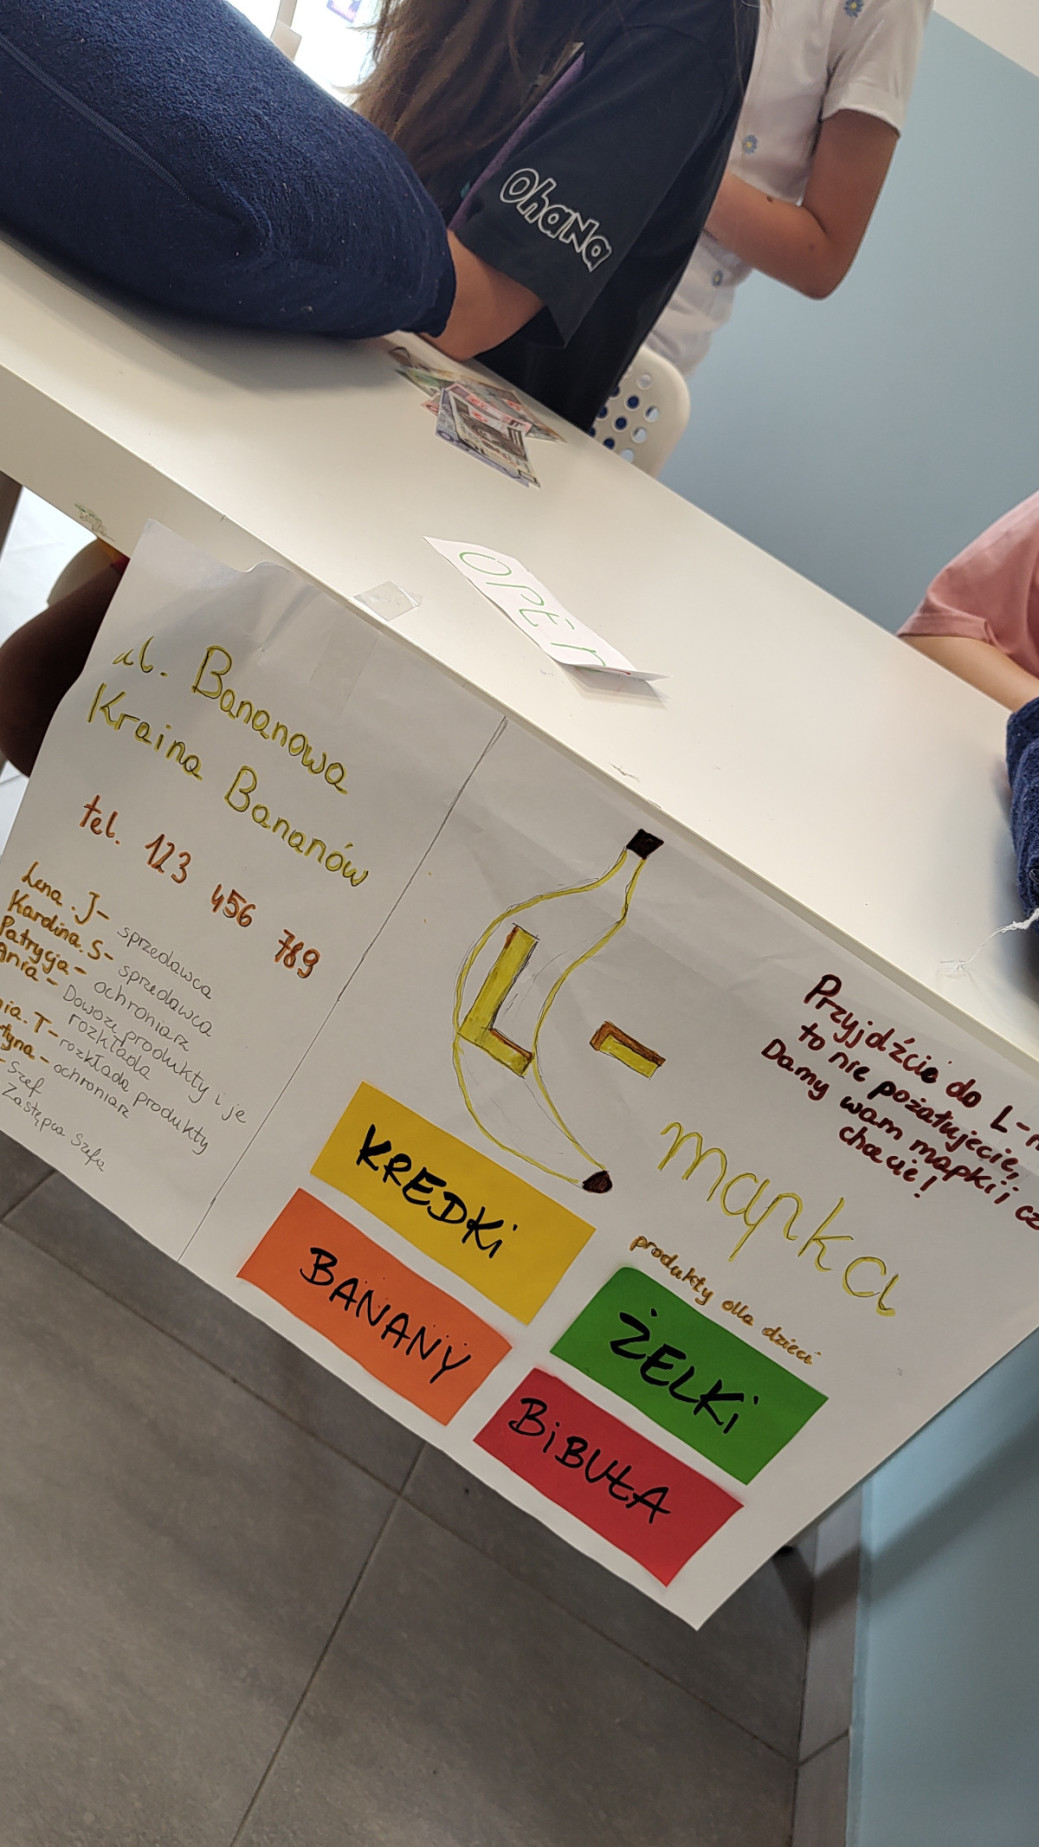 OhaNa
OPEn
ul. Bananowa
Kraina Bananów
tel. 123 456 789
Lena. J- sprzedawca
Karolina. S- sprzedawca
Patrycja- ochroniarz
Ania- Dowozi produkty i je
rozkłada
nia. T- rozkłada produkty
tyna- ochroniarz
- Szef
Zastępca Szefa
L-
mapka
Przyjdźcie do L-
to nie pożałujecie,
Damy wam mapki i cz
chacie!
produkty dla dzieci
KREDKi
BANANY
ŻELKi
BiBUŁA